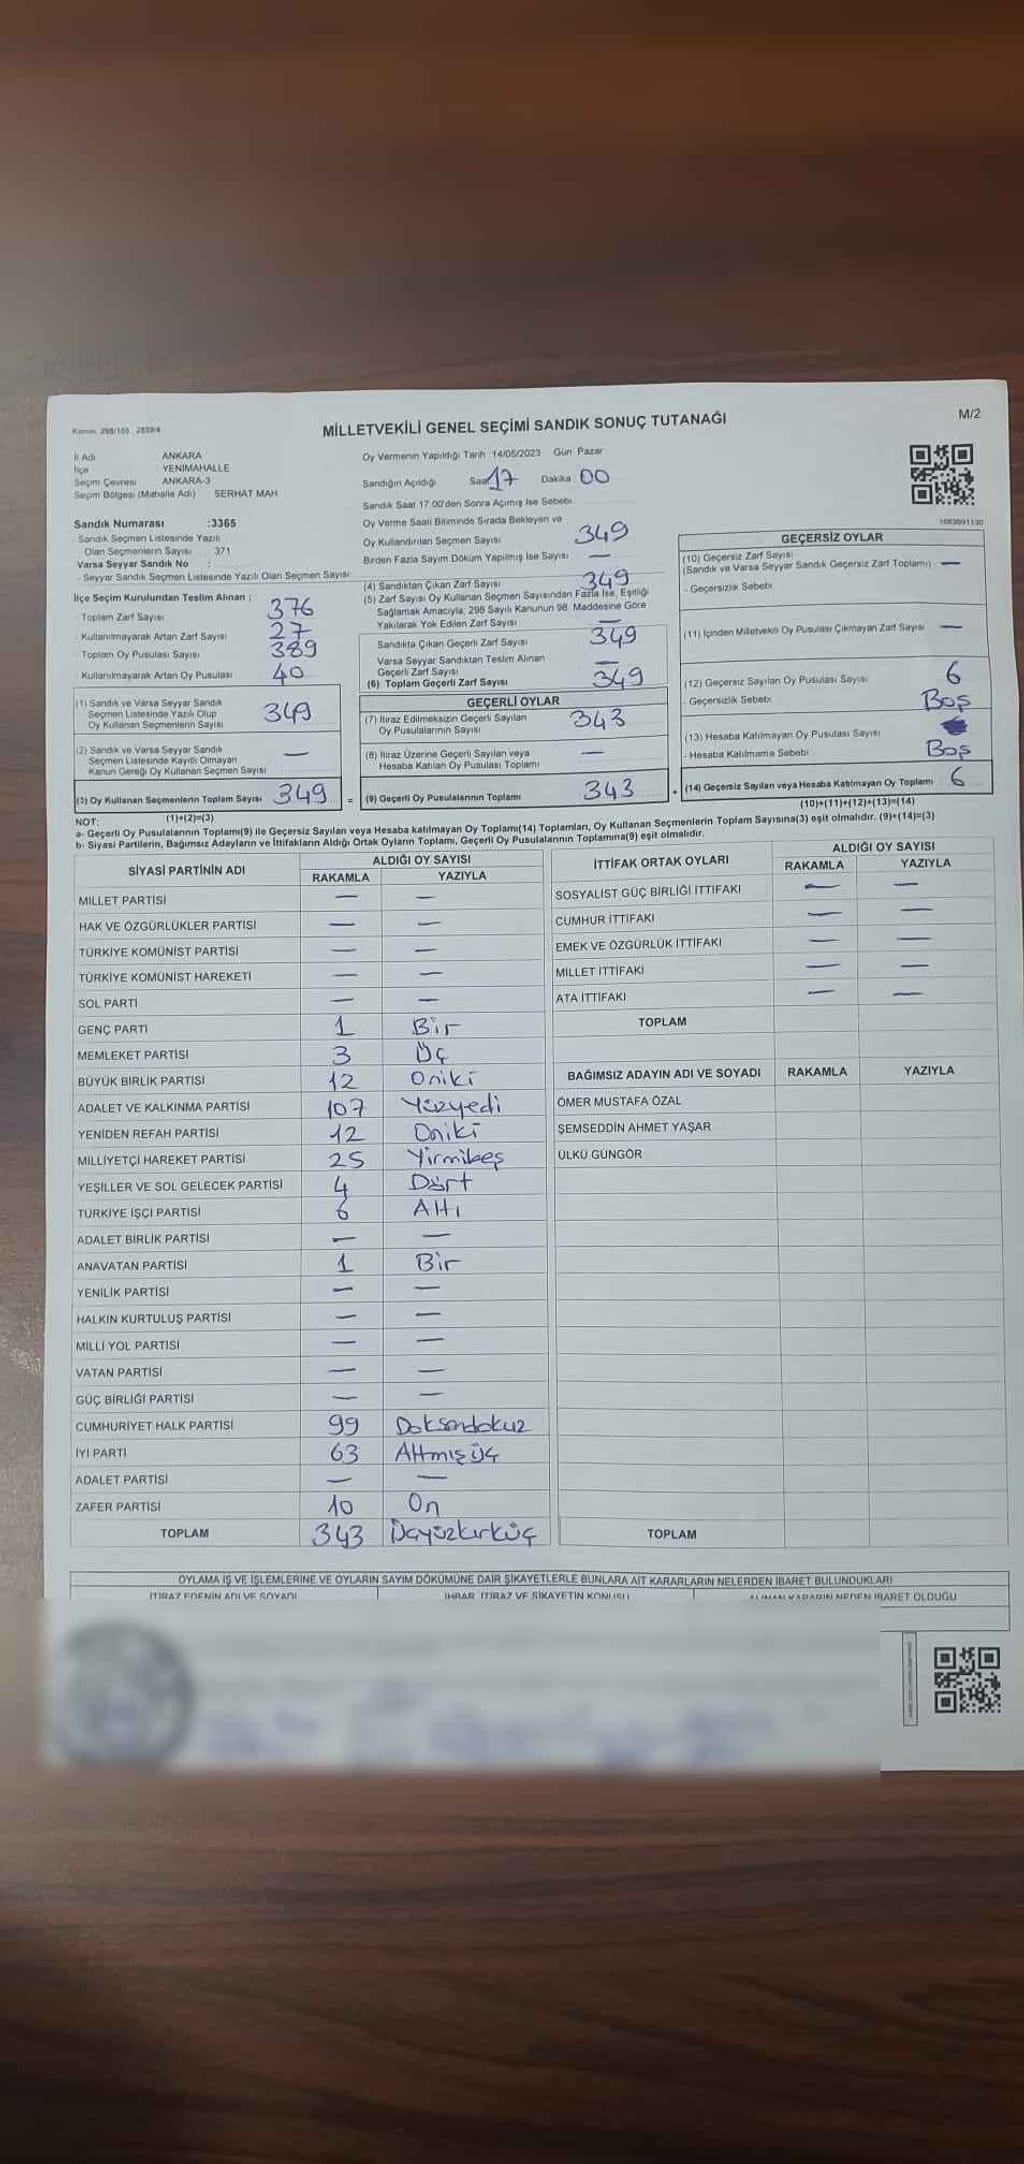 Kanun: 298/105, 2839/4
MİLLETVEKİLİ GENEL SEÇİMİ SANDIK SONUÇ TUTANAĞI
M/2
İl Adı ANKARA
İlçe YENİMAHALLE
Seçim Çevresi ANKARA-3
Seçim Bölgesi (Mahalle Adı) SERHAT MAH.
Sandık Numarası :3365
- Sandık Seçmen Listesinde Yazılı
Olan Seçmenlerin Sayısı 371
Varsa Seyyar Sandık No :
- Seyyar Sandık Seçmen Listesinde Yazılı Olan Seçmen Sayısı
İlçe Seçim Kurulundan Teslim Alınan ;
- Toplam Zarf Sayısı 376
- Kullanılmayarak Artan Zarf Sayısı 27
- Toplam Oy Pusulası Sayısı 389
- Kullanılmayarak Artan Oy Pusulası 40
(1) Sandık ve Varsa Seyyar Sandık
Seçmen Listesinde Yazılı Olup
Oy Kullanan Seçmenlerin Sayısı 349
(2) Sandık ve Varsa Seyyar Sandık
Seçmen Listesinde Kayıtlı Olmayan
Kanun Gereği Oy Kullanan Seçmen Sayısı —
(3) Oy Kullanan Seçmenlerin Toplam Sayısı 349 =
(1)+(2)=(3)
Oy Vermenin Yapıldığı Tarih :14/05/2023 Gün Pazar
Sandığın Açıldığı Saat 17 Dakika 00
Sandık Saat 17:00'den Sonra Açımış İse Sebebi
Oy Verme Saati Bitiminde Sırada Bekleyen ve
Oy Kullandırılan Seçmen Sayısı 349
Birden Fazla Sayım Döküm Yapılmış İse Sayısı —
(4) Sandıktan Çıkan Zarf Sayısı 349
(5) Zarf Sayısı Oy Kullanan Seçmen Sayısından Fazla İse, Eşitliği
Sağlamak Amacıyla; 298 Sayılı Kanunun 98. Maddesine Göre
Yakılarak Yok Edilen Zarf Sayısı —
Sandıkta Çıkan Geçerli Zarf Sayısı 349
Varsa Seyyar Sandıktan Teslim Alınan
Geçerli Zarf Sayısı —
(6) Toplam Geçerli Zarf Sayısı 349
GEÇERLİ OYLAR
(7) İtiraz Edilmeksizin Geçerli Sayılan
Oy Pusulalarının Sayısı 343
(8) İtiraz Üzerine Geçerli Sayılan veya
Hesaba Katılan Oy Pusulası Toplamı —
(9) Geçerli Oy Pusulalarının Toplamı 343 +
1083691130
GEÇERSİZ OYLAR
(10) Geçersiz Zarf Sayısı
(Sandık ve Varsa Seyyar Sandık Geçersiz Zarf Toplamı) —
- Geçersizlik Sebebi
(11) İçinden Milletvekili Oy Pusulası Çıkmayan Zarf Sayısı —
(12) Geçersiz Sayılan Oy Pusulası Sayısı 6
- Geçersizlik Sebebi Boş
(13) Hesaba Katılmayan Oy Pusulası Sayısı
- Hesaba Katılmama Sebebi Boş
(14) Geçersiz Sayılan veya Hesaba Katılmayan Oy Toplamı 6
(10)+(11)+(12)+(13)=(14)
NOT:
a- Geçerli Oy Pusulalarının Toplamı(9) ile Geçersiz Sayılan veya Hesaba katılmayan Oy Toplamı(14) Toplamları, Oy Kullanan Seçmenlerin Toplam Sayısına(3) eşit olmalıdır. (9)+(14)=(3)
b- Siyasi Partilerin, Bağımsız Adayların ve İttifakların Aldığı Ortak Oyların Toplamı, Geçerli Oy Pusulalarının Toplamına(9) eşit olmalıdır.
SİYASİ PARTİNİN ADI ALDIĞI OY SAYISI
RAKAMLA YAZIYLA
MİLLET PARTİSİ — —
HAK VE ÖZGÜRLÜKLER PARTİSİ — —
TÜRKİYE KOMÜNİST PARTİSİ — —
TÜRKİYE KOMÜNİST HAREKETİ — —
SOL PARTİ — —
GENÇ PARTİ 1 Bir
MEMLEKET PARTİSİ 3 Üç
BÜYÜK BİRLİK PARTİSİ 12 Oniki
ADALET VE KALKINMA PARTİSİ 107 Yüzyedi
YENİDEN REFAH PARTİSİ 12 Oniki
MİLLİYETÇİ HAREKET PARTİSİ 25 Yirmibeş
YEŞİLLER VE SOL GELECEK PARTİSİ 4 Dört
TÜRKİYE İŞÇİ PARTİSİ 6 Altı
ADALET BİRLİK PARTİSİ — —
ANAVATAN PARTİSİ 1 Bir
YENİLİK PARTİSİ — —
HALKIN KURTULUŞ PARTİSİ — —
MİLLİ YOL PARTİSİ — —
VATAN PARTİSİ — —
GÜÇ BİRLİĞİ PARTİSİ — —
CUMHURİYET HALK PARTİSİ 99 Doksandokuz
İYİ PARTİ 63 Altmışüç
ADALET PARTİSİ — —
ZAFER PARTİSİ 10 On
TOPLAM 343 Üçyüzkırküç
İTTİFAK ORTAK OYLARI ALDIĞI OY SAYISI
RAKAMLA YAZIYLA
SOSYALİST GÜÇ BİRLİĞİ İTTİFAKI — —
CUMHUR İTTİFAKI — —
EMEK VE ÖZGÜRLÜK İTTİFAKI — —
MİLLET İTTİFAKI — —
ATA İTTİFAKI — —
TOPLAM
BAĞIMSIZ ADAYIN ADI VE SOYADI RAKAMLA YAZIYLA
ÖMER MUSTAFA ÖZAL
ŞEMSEDDİN AHMET YAŞAR
ÜLKÜ GÜNGÖR
TOPLAM
OYLAMA İŞ VE İŞLEMLERİNE VE OYLARIN SAYIM DÖKÜMÜNE DAİR ŞİKAYETLERLE BUNLARA AİT KARARLARIN NELERDEN İBARET BULUNDUKLARI
İTİRAZ EDENİN ADI VE SOYADI İHBAR, İTİRAZ VE ŞİKAYETİN KONUSU ALINAN KARARIN NEDEN İBARET OLDUĞU